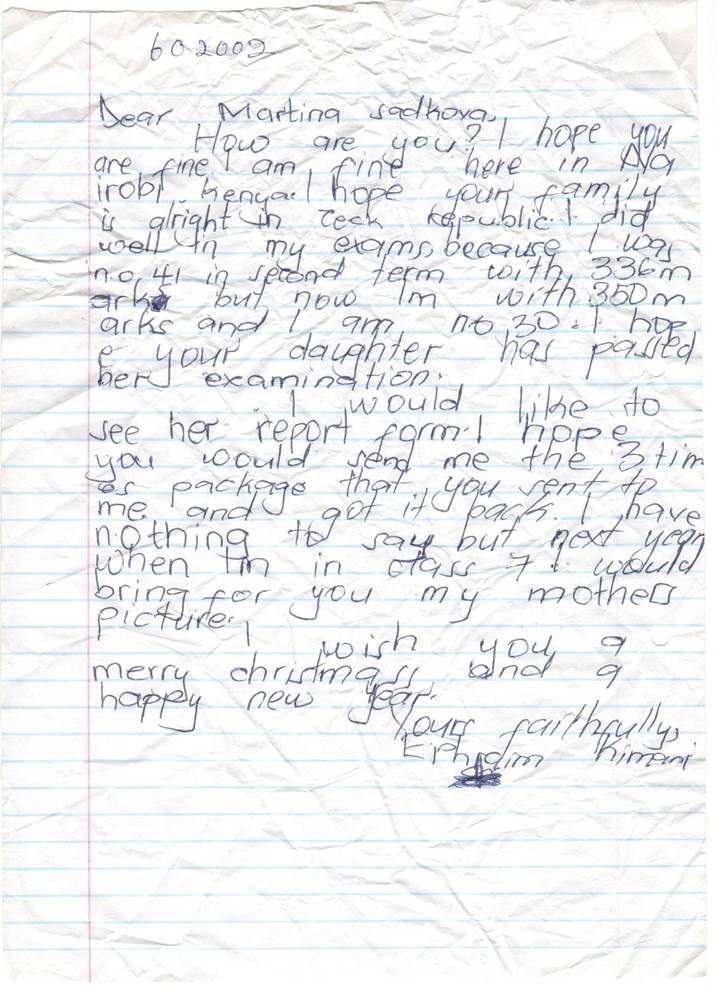 602002
Dear Martina sadkova,
How are you? I hope you
are fine I am fine here in Na
irobi kenya. I hope your family
is alright in Ceck Republic. I did
well in my exams, because I was
no. 41 in second term with 336m
arks but now Im with 350m
arks and I am no. 30. I hop
e your daughter has passed
her examination.
I would like to
see her report form. I hope
you would send me the 3 tim
es package that you sent to
me and got it back. I have
nothing to say but next year
when Im in class 7 I would
bring for you my mothers
picture.
I wish you a
merry christmass and a
happy new year.
Yours faithfully,
Ephraim Kimani